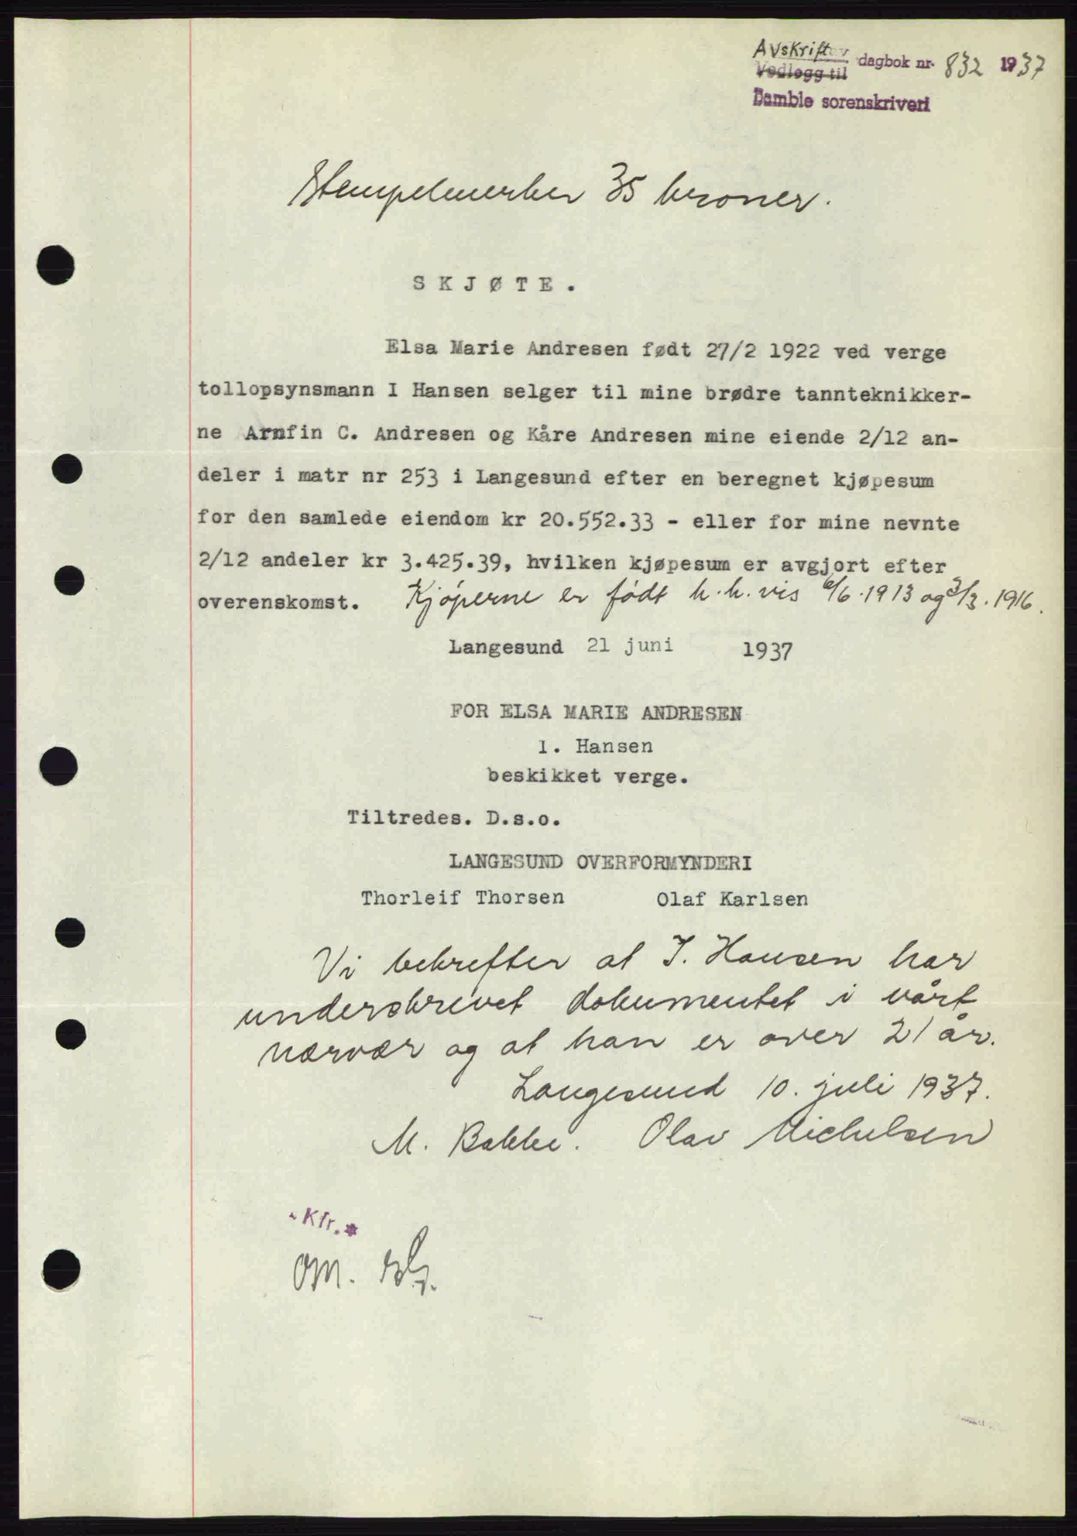 Avskrift av
Vedlegg til dagbok nr. 832 1937
Bamble sorenskriveri
Stempelmerker 35 kroner.
SKJØTE.
Elsa Marie Andresen født 27/2 1922 ved verge
tollopsynsmann I Hansen selger til mine brødre tannteknikker-
ne Arnfin C. Andresen og Kåre Andresen mine eiende 2/12 an-
deler i matr nr 253 i Langesund efter en beregnet kjøpesum
for den samlede eiendom kr 20.552.33 - eller for mine nevnte
2/12 andeler kr 3.425.39, hvilken kjøpesum er avgjort efter
overenskomst. Kjøperne er født h.h.vis 6/6.1913 og 3/3.1916.
Langesund 21 juni 1937
FOR ELSA MARIE ANDRESEN
I. Hansen
beskikket verge.
Tiltredes. D.s.o.
LANGESUND OVERFORMYNDERI
Thorleif Thorsen Olaf Karlsen
Vi bekrefter at I. Hansen har
underskrevet dokumentet i vårt
nærvær og at han er over 21 år.
Langesund 10. juli 1937.
M. Bakke. Olav Michelsen
Kfr.
OM.